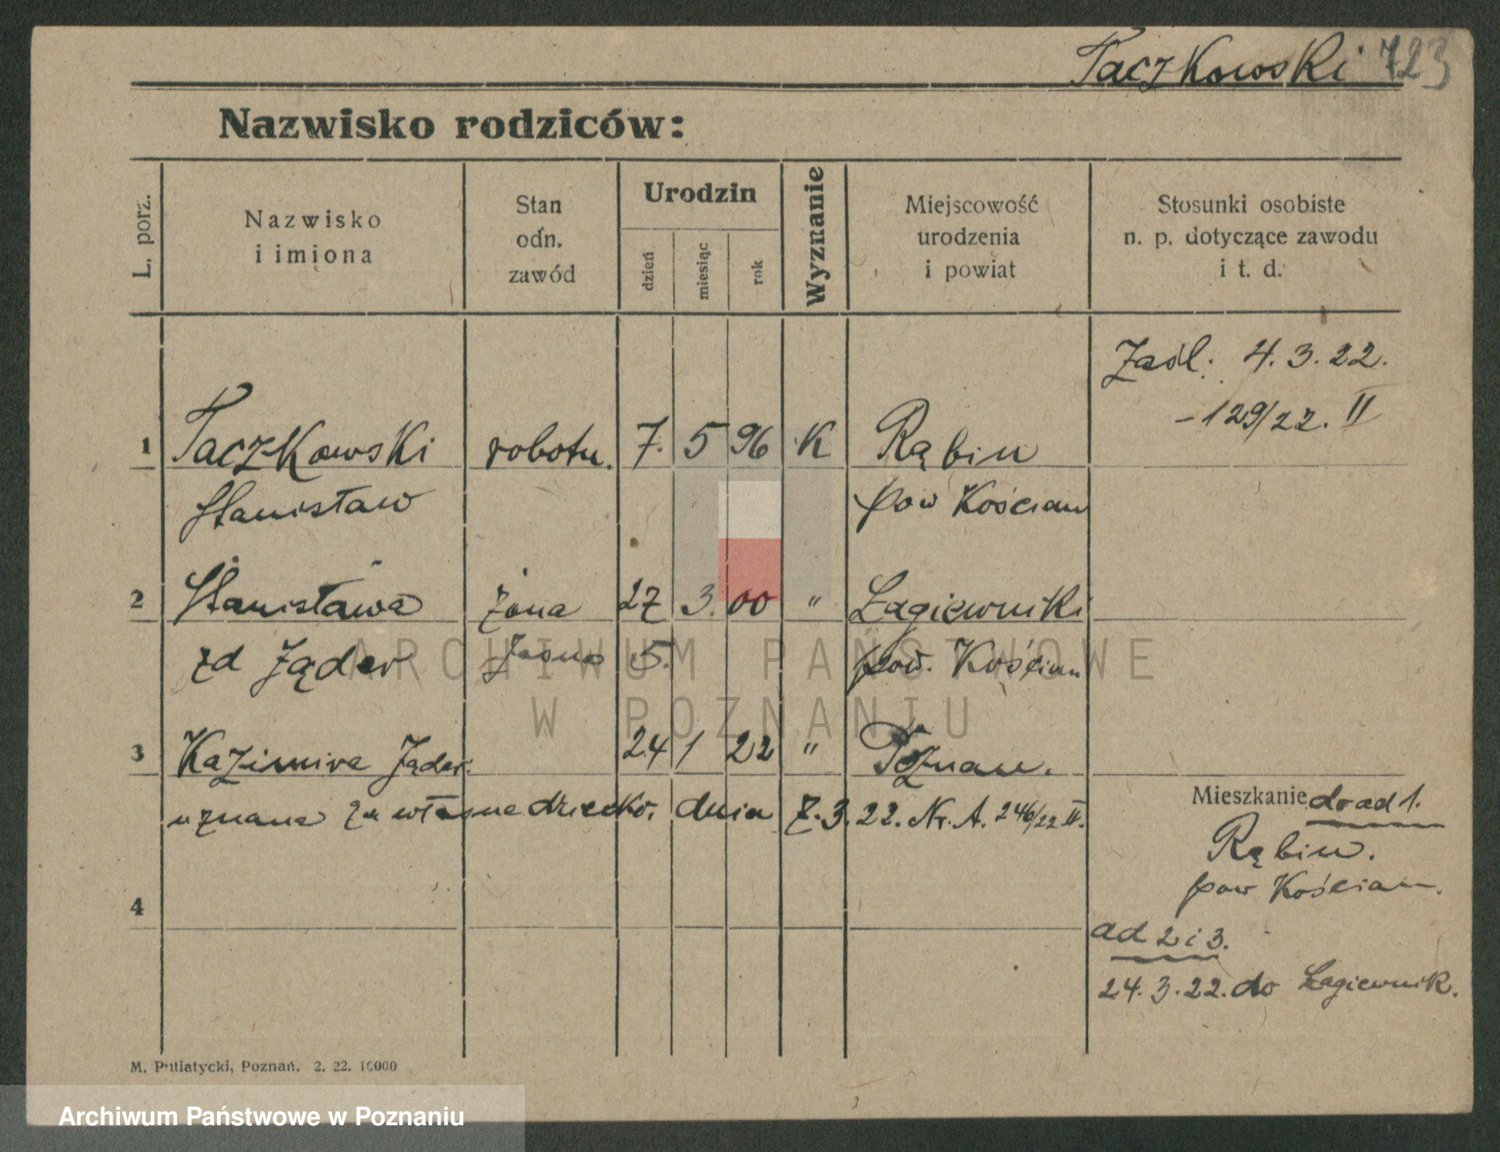 Taczkowski 723
Nazwisko rodziców:
L. porz.
Nazwisko
i imiona
Stan
odn.
zawód
Urodzin
dzień
miesiąc
rok
Wyznanie
Miejscowość
urodzenia
i powiat
Stosunki osobiste
n. p. dotyczące zawodu
i t. d.
Zaśl. 4.3.22.
-129/22. II
1 Taczkowski robotn. 7. 5 96 K Rąbin
Stanisław pow Kościan
2 Stanisława żona 27 3. 00 " Łagiewniki
zd Jąder 5. pow. Kościan
3 Kazimira Jąder. 24 1 22 " Poznan.
uznana za własne dziecko. dnia 7.3.22. Nr. A. 246/22 II.
Mieszkanie do ad 1.
Rąbin.
pow Kościan.
4
ad 2 i 3.
24.3.22. do Łagiewnik.
M. Putiatycki, Poznań. 2. 22. 10000
ARCHIWUM PAŃSTWOWE
W POZNANIU
Archiwum Państwowe w Poznaniu